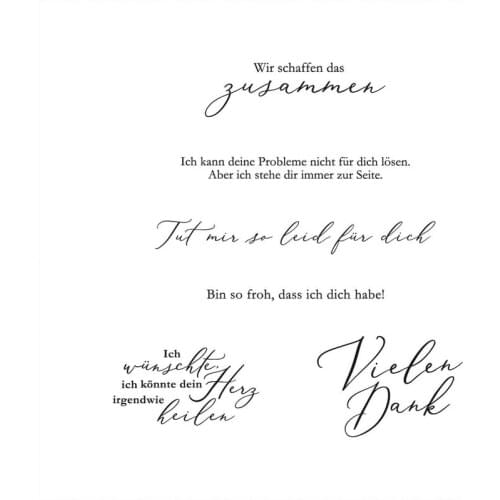 Wir schaffen das
zusammen
Ich kann deine Probleme nicht für dich lösen.
Aber ich stehe dir immer zur Seite.
Tut mir so leid für dich
Bin so froh, dass ich dich habe!
Ich
wünschte,
ich könnte dein Herz
irgendwie
heilen
Vielen
Dank